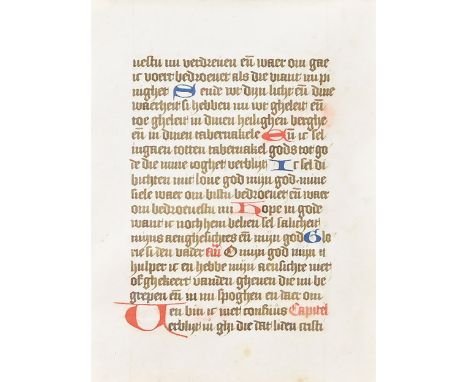 uestu mi verdreuen en̄ waer om gae
ic voert bedroeuet als die viant mi pi
nighet Sende wt dijn licht en̄ dine
waerheit si hebben mi wt gheleit en̄
toe gheleit in dinen heilighen berghe
en̄ in dinen tabernakele En̄ ic sel
ingaen totten tabernakel gods tot go
de die mine ioghet verblijt Ic sel di
biechten mit loue god mijn god mine
siele waer om bistu bedroeuet en̄ waer
om bedroeuestu mi Hope in gode
want ic noch hem belien sel salicheit
mijns aensichtes en̄ mijn god Glo
rie si den vader an̄ O mijn god mijn
hulper ic en hebbe mijn aensichte niet
of ghekeert vanden ghenen die mi be
grepen en̄ in mi spoghen en daer om
en bin ic niet confuus Capitel
Verblijt in ghi die dat liden cristi